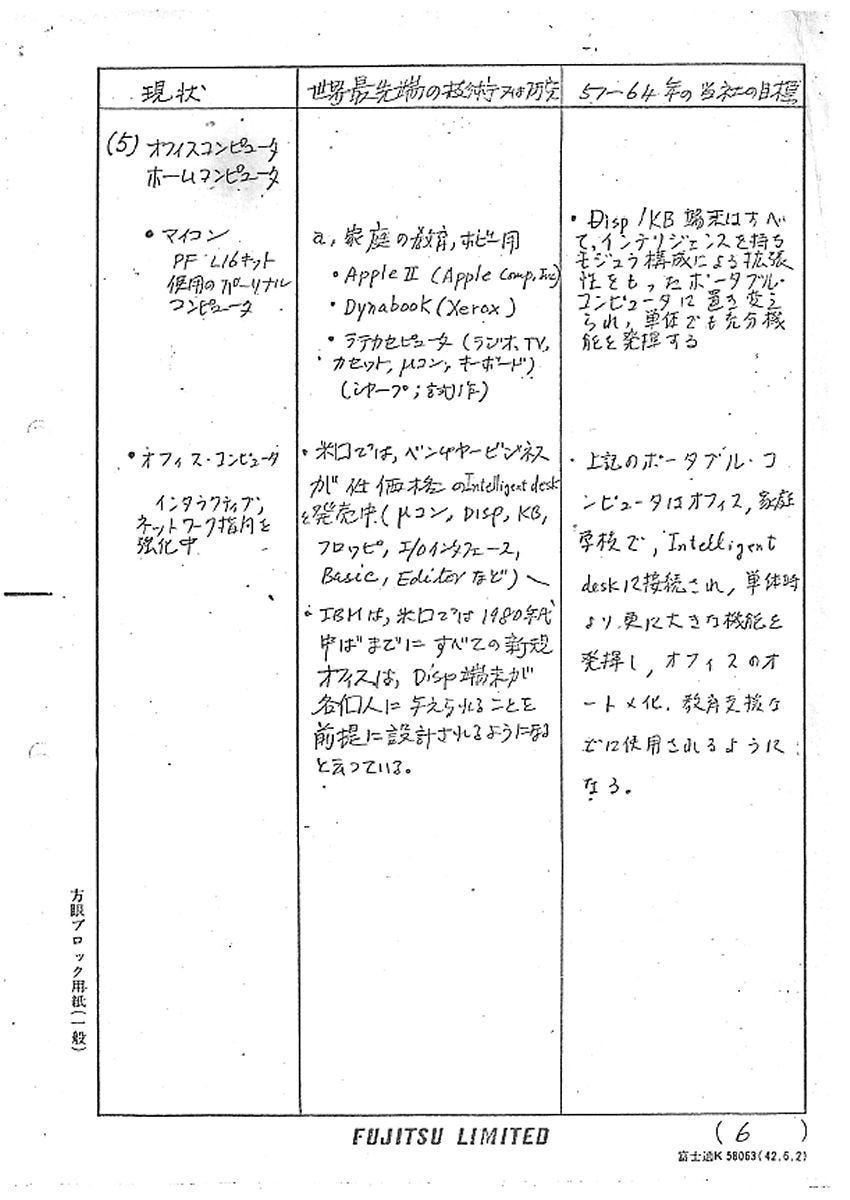 現状
世界最先端の技術又は研究
57～64年の当社の目標
(5) オフィスコンピュータ
ホームコンピュータ
• マイコン
PF L16キット
使用のパーソナル
コンピュータ
a, 家庭の教育, ホビー用
• Apple II (Apple Comp, Inc)
• Dynabook (Xerox)
• ラテカセピュータ (ラジオ, TV,
カセット, μコン, キーボード)
(シャープ; 試作)
• Disp / KB 端末はすべ
て, インテリジェンスを持ち
モジュラ構成による拡張
性をもったポータブル・
コンピュータに置き変え
られ, 単体でも充分機
能を発揮する
• オフィス・コンピュータ
インタラクティブ,
ネットワーク指向を
強化中
• 米口では, ベンチャービジネス
が低価格のIntelligent desk
を発売中 (μコン, DISP, KB,
フロッピ, I/Oインタフェース,
Basic, Editor など)
• IBMは, 米口では1980年代
中ばまでにすべての新規
オフィスは, Disp端末が
各個人に与えられることを
前提に設計されるようになる
と云っている。
• 上記のポータブル・コ
ンピュータはオフィス, 家庭
学校で, Intelligent
deskに接続され, 単体時
より更に大きな機能を
発揮し, オフィスのオ
ートメ化, 教育支援な
どに使用されるように
なる。
方眼ブロック用紙(一般)
FUJITSU LIMITED
( 6 )
富士通K 58063(42.6.2)